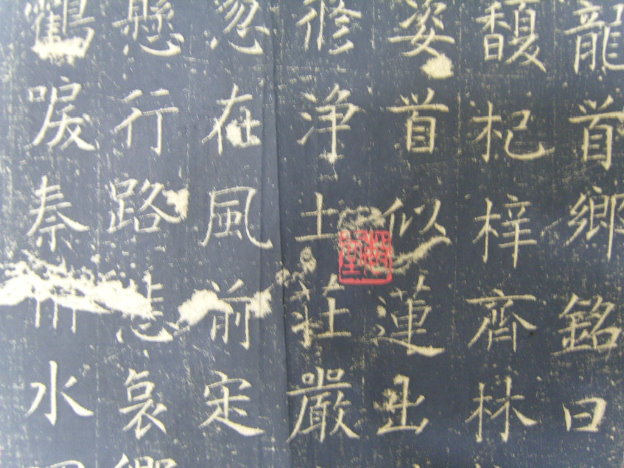 龍首鄉銘曰
馥杞梓齊林
姿首似蓮出
修浄土莊嚴
忽在風前定
懸行路悲哀
鶴唳秦水